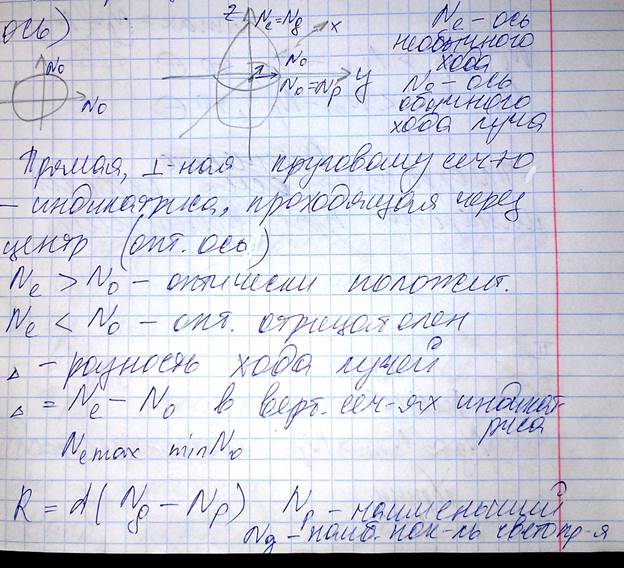 ось)
No
No
z
Ne=Ng
x
No
No=Np
y
Ne – ось
необычного
хода
No – ось
обычного
хода луча
Прямая, ⊥-ная круговому сеч-ю
– индикатриса, проходящая через
центр (опт. ось)
Ne > No – оптически положит.
Ne < No – опт. отрицателен
Δ – разность хода лучей
Δ = Ne – No в верт. сеч-ях индикат-
риса
Ne max min No
R = d(Ng – Np) Np – наименьший
Ng – наиб. пок-ль светопр-я